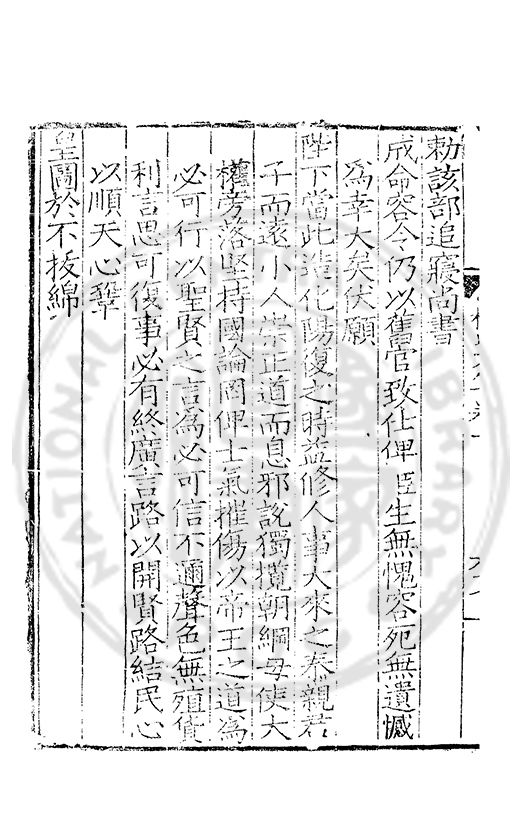 勑該部追寢尚書
成命容令仍以舊官致仕俾臣生無愧容死無遺憾
爲幸大矣伏願
陛下當此造化陽復之時益修人事大來之泰親君
子而遠小人崇正道而息邪說獨攬朝綱毋使大
權旁落堅持國論罔俾士氣摧傷以帝王之道爲
必可行以聖賢之言爲必可信不邇聲色無殖貨
利言思可復事必有終廣言路以開賢路結民心
以順天心鞏
皇圖於不拔綿